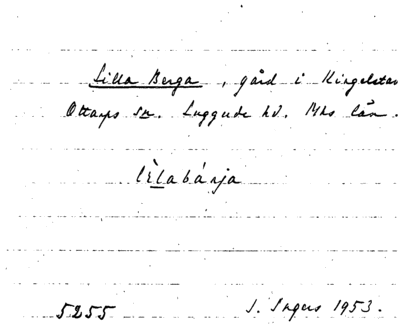 Lilla Berga, gård i Kingelstad
Ottarps sn. Luggude hd. Mhs län.
lìlabárja
5255 I. Ingers 1953.